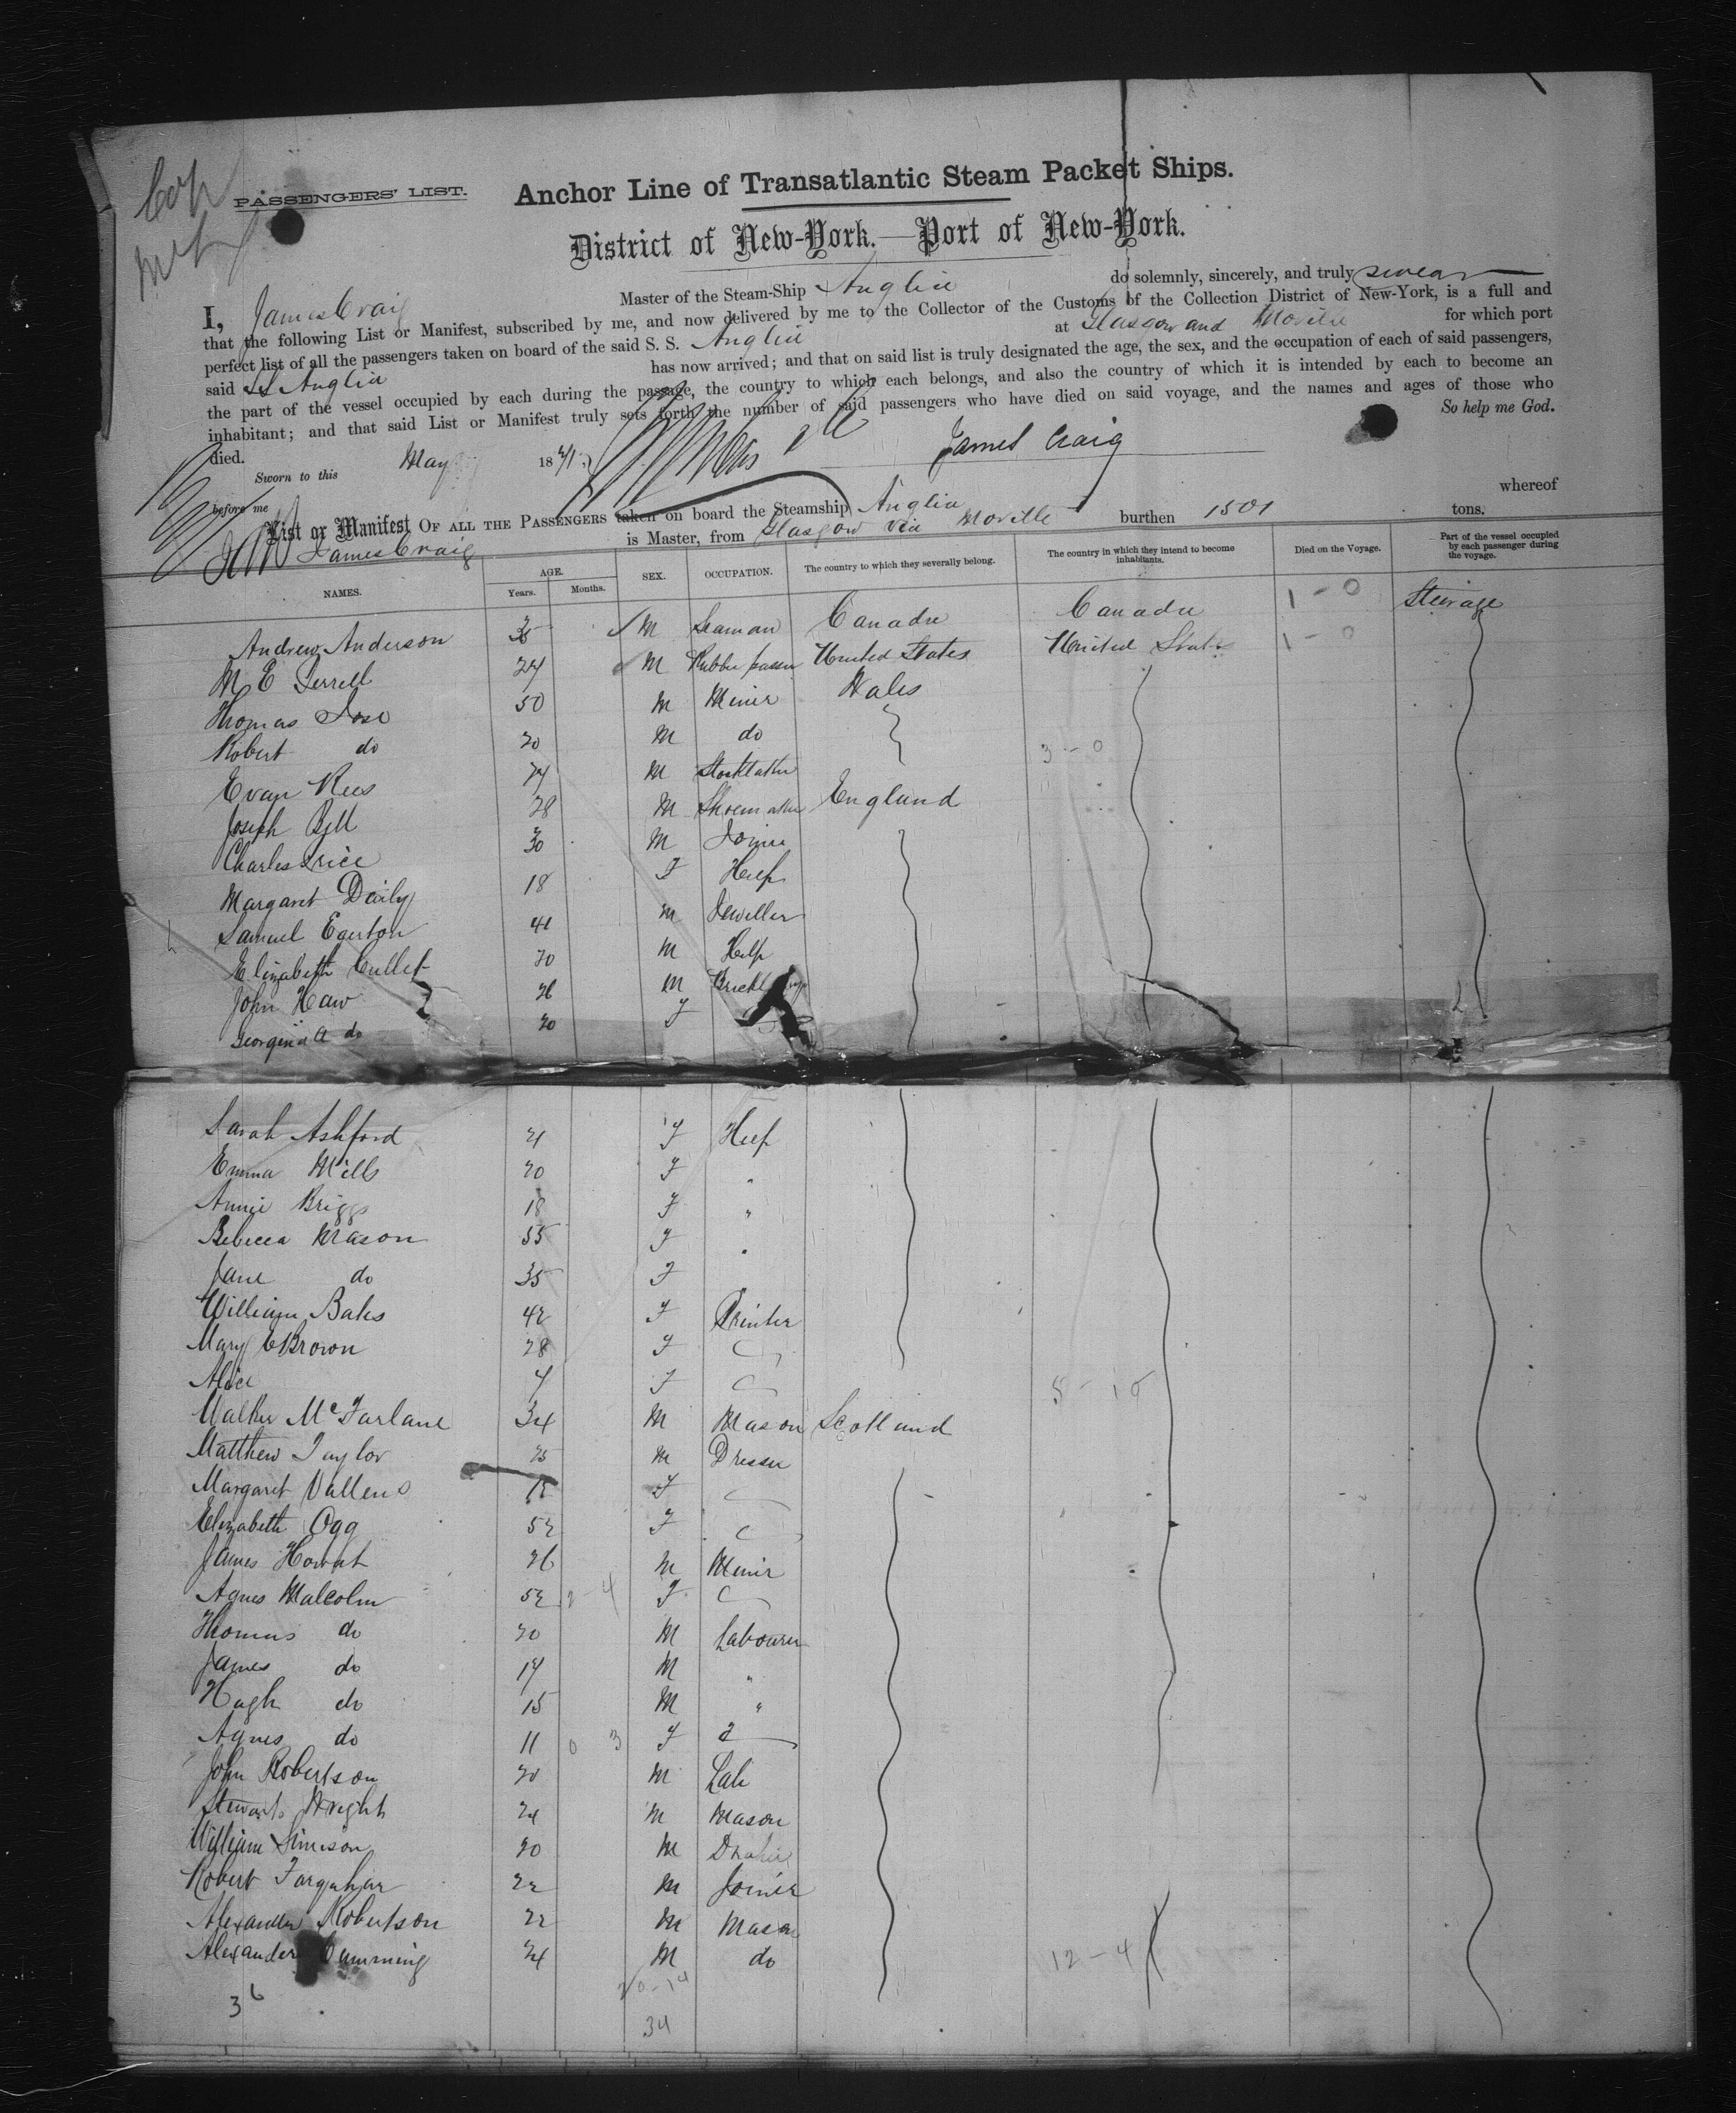 PASSENGERS' LIST.
Anchor Line of Transatlantic Steam Packet Ships.
District of New-York.—Port of New-York.
I, James Craig Master of the Steam-Ship Anglia do solemnly, sincerely, and truly swear
that the following List or Manifest, subscribed by me, and now delivered by me to the Collector of the Customs of the Collection District of New-York, is a full and
perfect list of all the passengers taken on board of the said S. S. Anglia at Glasgow and Moville for which port
said SS Anglia has now arrived; and that on said list is truly designated the age, the sex, and the occupation of each of said passengers,
the part of the vessel occupied by each during the passage, the country to which each belongs, and also the country of which it is intended by each to become an
inhabitant; and that said List or Manifest truly sets forth the number of said passengers who have died on said voyage, and the names and ages of those who
died. So help me God.
Sworn to this May 1871
James Craig
before me
List or Manifest OF ALL THE PASSENGERS taken on board the Steamship Anglia whereof
James Craig is Master, from Glasgow via Moville burthen 1501 tons.
NAMES. AGE. Years. Months. SEX. OCCUPATION. The country to which they severally belong. The country in which they intend to become inhabitants. Died on the Voyage. Part of the vessel occupied by each passenger during the voyage.
Andrew Anderson 35 M Seaman Canada Canada 1-0 Steerage
M E 24 M United States United States 1-0
Thomas 50 M Miner Wales
Robert do 20 M do 3-0
Evan Rees 24 M
Joseph Bell 28 M Shoemaker England
Charles Price 30 M Joiner
Margaret Daily 18 F Help
Samuel Egerton 41 M Jeweller
Elizabeth Cullet 20 M Help
John Haw 26 M
Georgina A do 20 F
Sarah Ashford 21 F Help
Emma Mills 20 F "
Annie Briggs 18 F "
Rebecca Mason 55 F "
Jane do 35 F
William Bates 42 F Printer
Mary E Brown 28 F
Alice 4 F
Walter McFarlane 34 M Mason Scotland
Matthew Taylor 25 M Dresser
Margaret Vallens 18 F
Elizabeth Ogg 52 F
James Howat 26 M Miner
Agnes Malcolm 52 2-4 F
Thomas do 20 M Labourer
James do 17 M "
Hugh do 15 M "
Agnes do 11 0 3 F
John Robertson 20 M Lab
Stewart Wright 24 M Mason
William Simson 20 M
Robert Farquhar 22 M Joiner
Alexander Robertson 22 M Mason
Alexander Cumming 24 M do 12-4
36
34